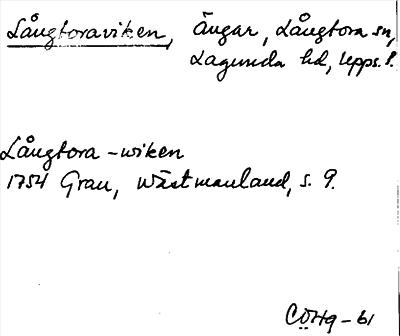 Långtoraviken, Ängar, Långtora sn,
Lagunda hd, Upps. l.
Långtora-wiken
1754 Grau, Wästmanland, s. 9.
CÖHg-61